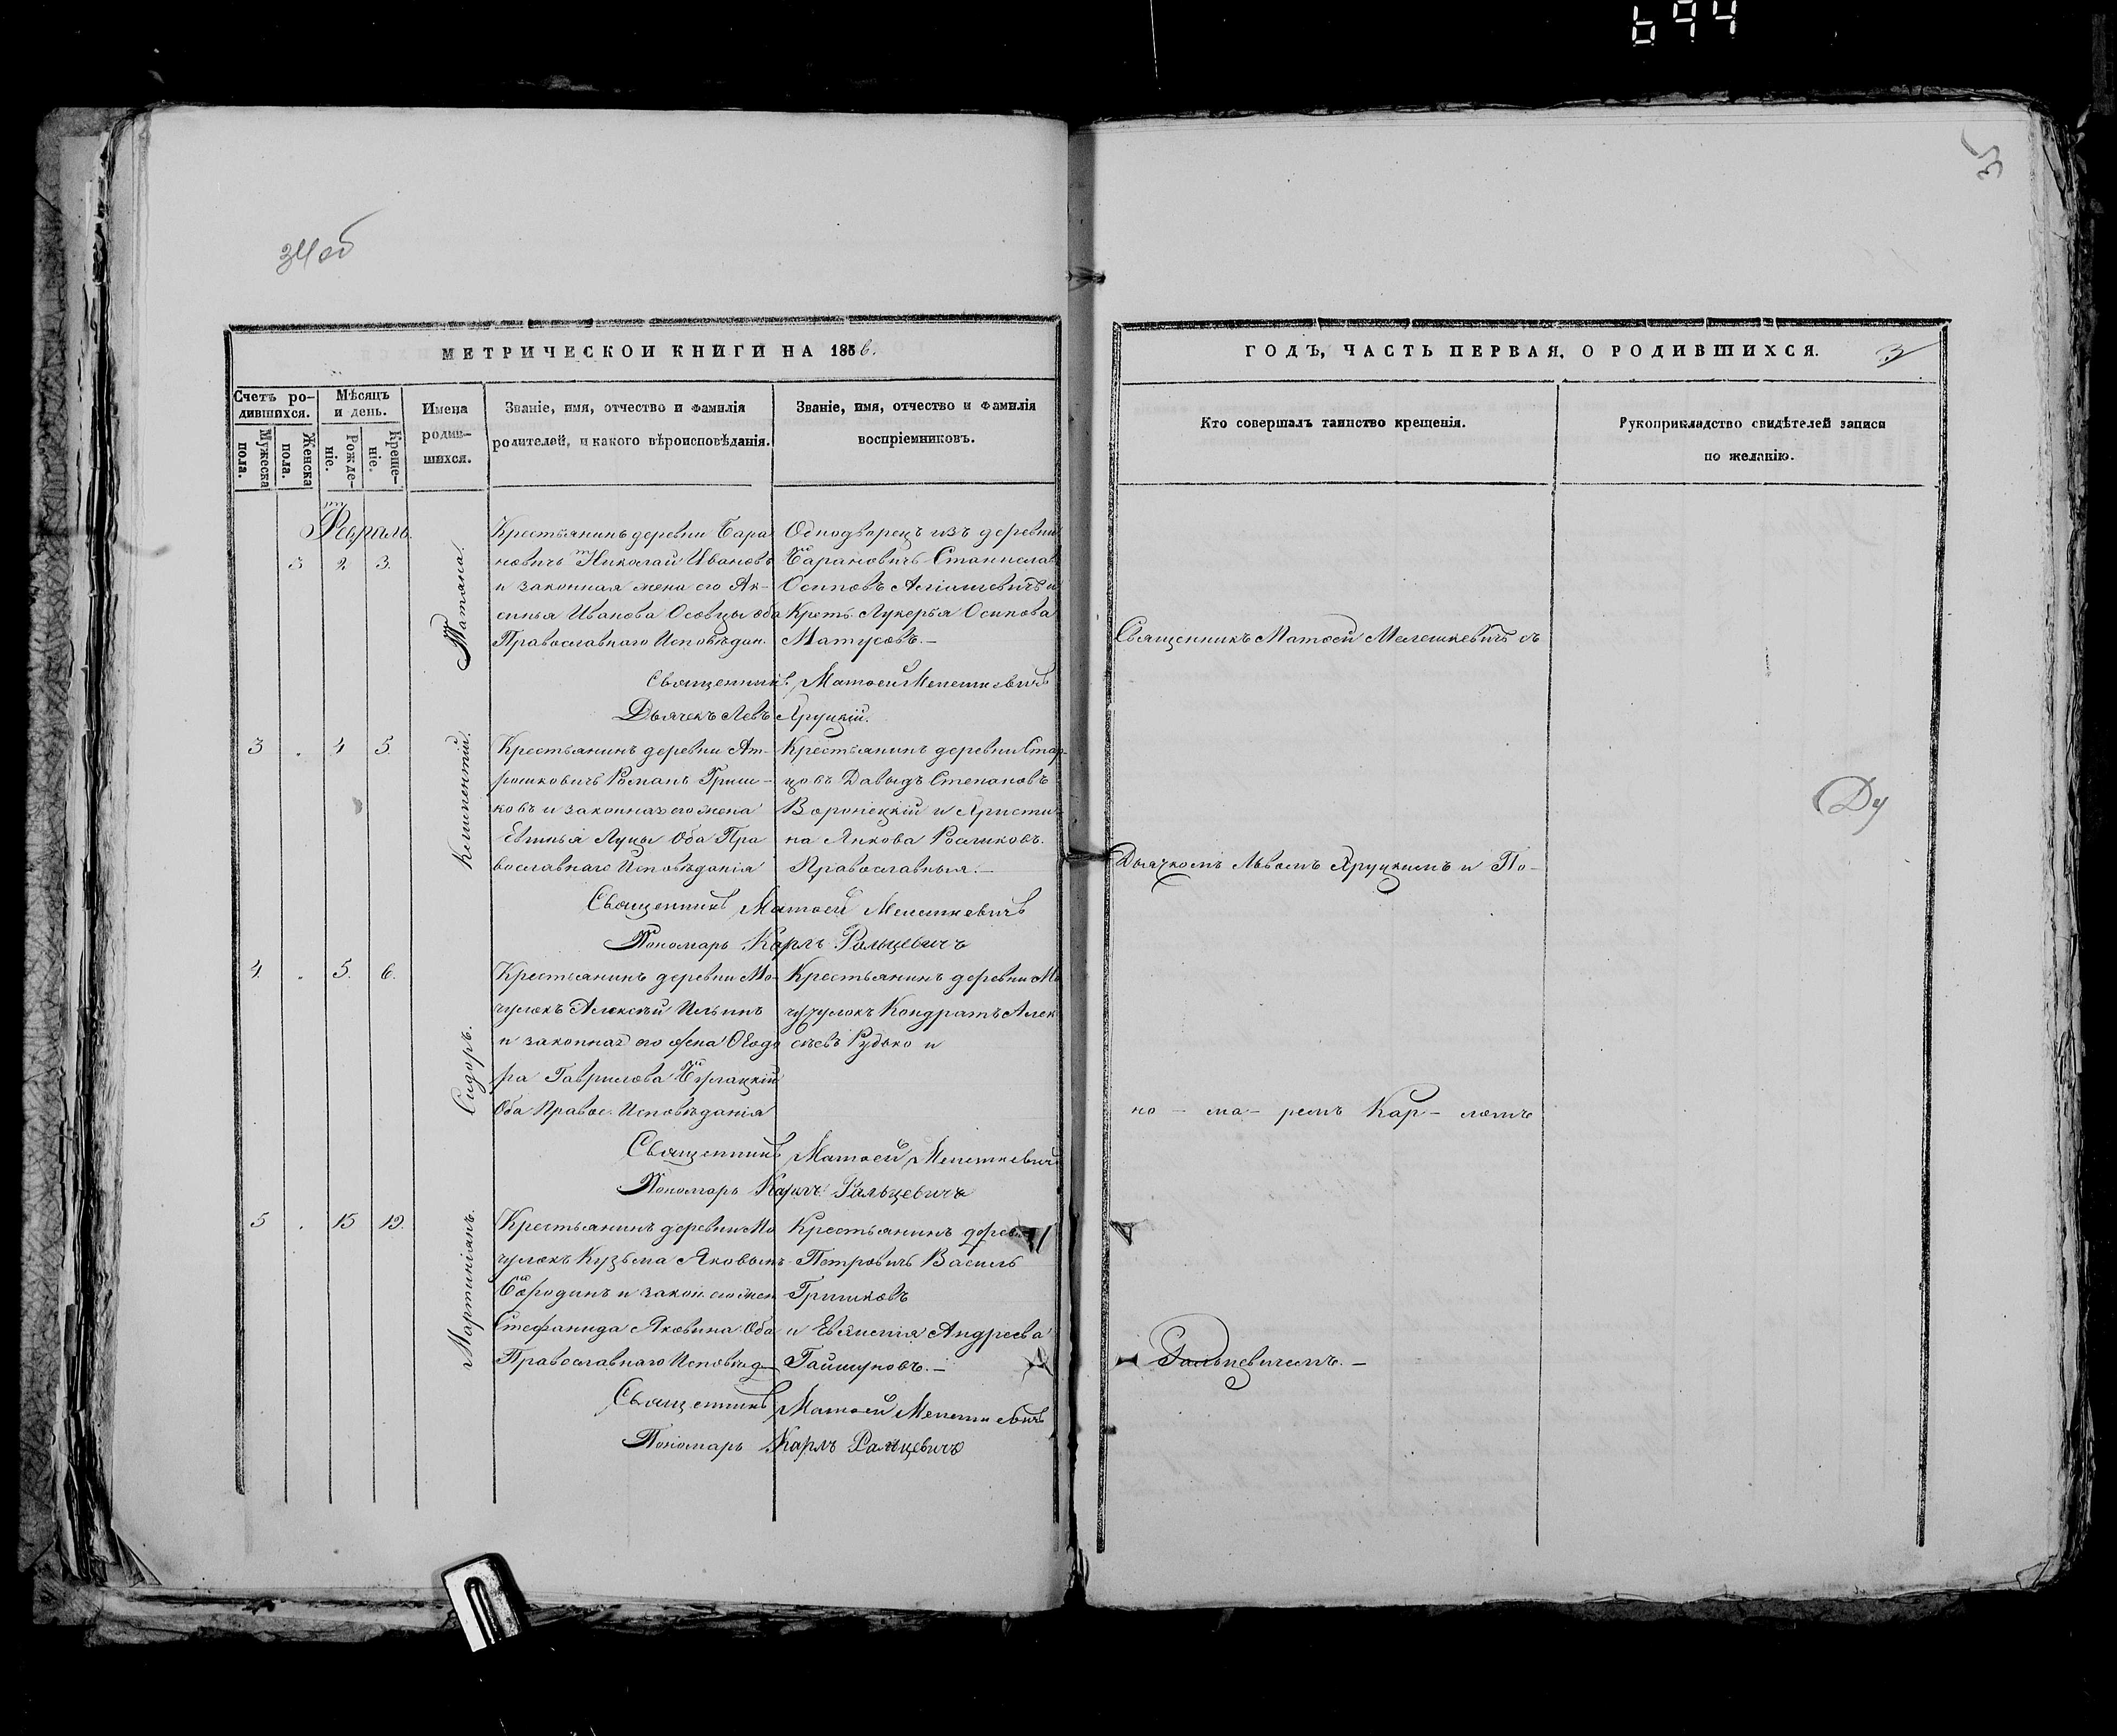 694
34об
35
МЕТРИЧЕСКОЙ КНИГИ НА 1856.
ГОДЪ, ЧАСТЬ ПЕРВАЯ, О РОДИВШИХСЯ.
3
Счетъ ро-
дившихся.
Мужеска
пола.
Женска
пола.
Мѣсяцъ
и день.
Рожде-
ніе.
Креще-
ніе.
Имена
родив-
шихся.
Званіе, имя, отчество и фамилія
родителей, и какого вѣроисповѣданія.
Званіе, имя, отчество и фамилія
воспріемниковъ.
Кто совершалъ таинство крещенія.
Рукоприкладство свидѣтелей записи
по желанію.
Февраль.
3 2 3.
Татіана.
Крестьянинъ деревни Бара
новичъ Николай Ивановъ
и законная жена его Ак-
синья Иванова Осовцы оба
Православнаго Исповѣдан.
Однодворецъ изъ деревни
Барановичъ Станислав
Осиповъ и
Крест. Лукерья Осипова
Матусовъ.—
Священникъ Матѳей Мелешкевичъ
Дьячекъ Левъ Хруцкій.
3 . 4 5.
Климентій.
Крестьянинъ деревни Ат-
рошковичъ Романъ Гриш-
ковъ и законная его жена
Евгинья Луцы Оба Пра
вославнаго Исповѣданія
Крестьянинъ деревни Стар-
цовъ Давыдъ Степановъ
Воронецкій и Христи-
на Янкова Росликовъ.
Православныя.—
Священникъ Матѳей Мелешкевичъ
Пономарь Карлъ Гальцевичъ
4 . 5. 6.
Сидоръ.
Крестьянинъ деревни Мо-
чулокъ Алексѣй Ильинъ
и законная его жена Ѳеодо
ра Гаврилова
Оба Правос. Исповѣданія
Крестьянинъ деревни Мо
чулокъ Кондратъ Алек
сѣевъ Рудько и
Священникъ Матѳей Мелешкевичъ
Пономарь Карлъ Гальцевичъ
5 . 15 19.
Мартиніянъ.
Крестьянинъ деревни Мо
чулокъ Кузьма Яковынъ
Бородинъ и закон. его жен
Стефанида Яковина Оба
Православнаго Исповѣд—
Крестьянинъ дерев.
Петровичъ Василь
Гришковъ
и Евгенія Андреева
Гайшуновъ.—
Священникъ Матѳей Мелешкевичъ
Пономарь Карлъ Гальцевичъ
Священникъ Матѳей Мелешкевичъ съ
Дьячкомъ Львомъ Хруцкимъ и По-
но- ма- ремъ Кар- ломъ
Гальцевичемъ.—
Ду